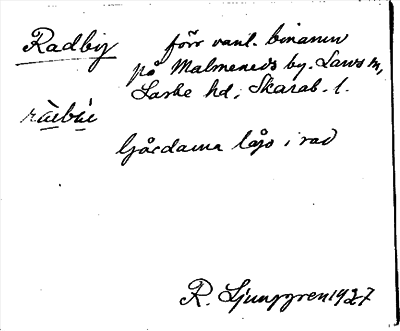 Radby förr vanl. binamn
på Malmeneds by. Laws m,
Laske hd; Skarab. l.
Gårdarna lågo i rad
R. Ljunggren 1927